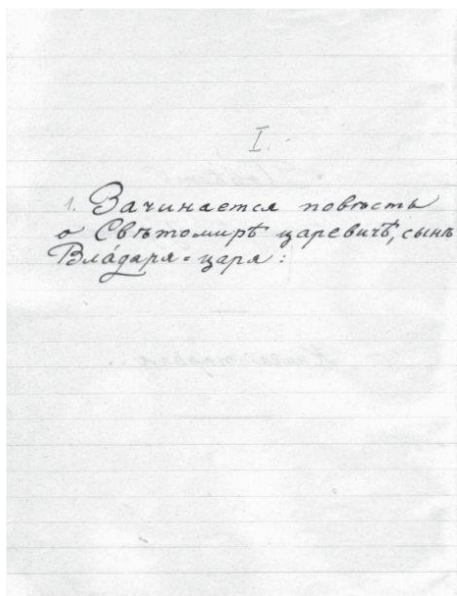 I.
1. Зачинается повѣсть
о Свѣтомирѣ царевичѣ, сынѣ
Владаря-царя: